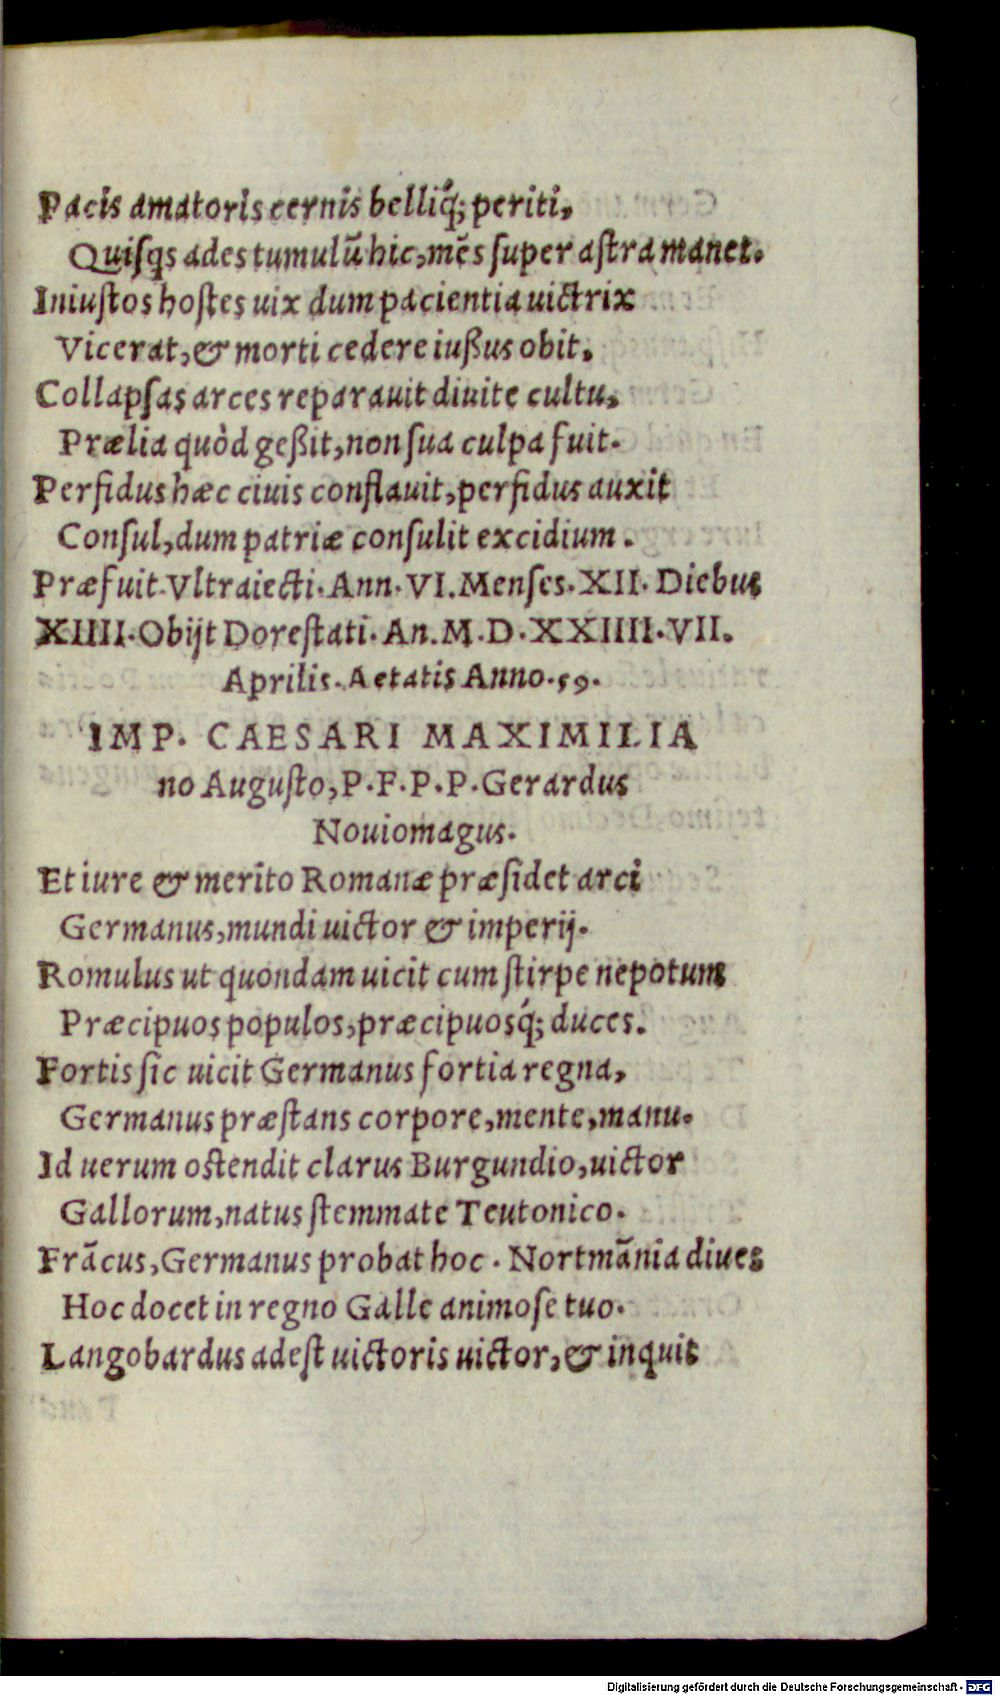 Pacis amatoris cernis belliq́; periti,
Quiſqs ades tumulū hic, mēs ſuper aſtra manet.
Iniuſtos hoſtes uix dum pacientia uictrix
Vicerat, & morti cedere iußus obit.
Collapſas arces reparauit diuite cultu,
Prælia quòd geßit, non ſua culpa fuit.
Perfidus hæc ciuis conflauit, perfidus auxit
Conſul, dum patriæ conſulit excidium.
Præfuit. Vltraiecti. Ann. VI. Menſes. XII. Diebus
XIIII. Obijt Doreſtati. An. M. D. XXIIII. VII.
Aprilis. Aetatis Anno. 59.
IMP. CAESARI MAXIMILIA
no Auguſto, P. F. P. P. Gerardus
Nouiomagus.
Et iure & merito Romanæ præſidet arci
Germanus, mundi uictor & imperij.
Romulus ut quondam uicit cum ſtirpe nepotum
Præcipuos populos, præcipuosq́; duces.
Fortis ſic uicit Germanus fortia regna,
Germanus præſtans corpore, mente, manu.
Id uerum oſtendit clarus Burgundio, uictor
Gallorum, natus ſtemmate Teutonico.
Frācus, Germanus probat hoc. Nortmānia diues
Hoc docet in regno Galle animoſe tuo.
Langobardus adeſt uictoris uictor, & inquit
Digitalisierung gefördert durch die Deutsche Forschungsgemeinschaft - DFG